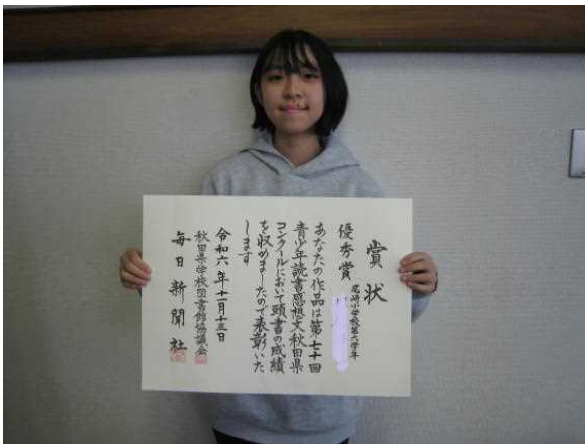 賞状
優秀賞
尾崎小学校第六学年
あなたの作品は第七十回
青少年読書感想文秋田県
コンクールにおいて頭書の成績
を収めましたので表彰いた
します
令和六年十一月十三日
秋田県学校図書館協議会
毎日新聞社